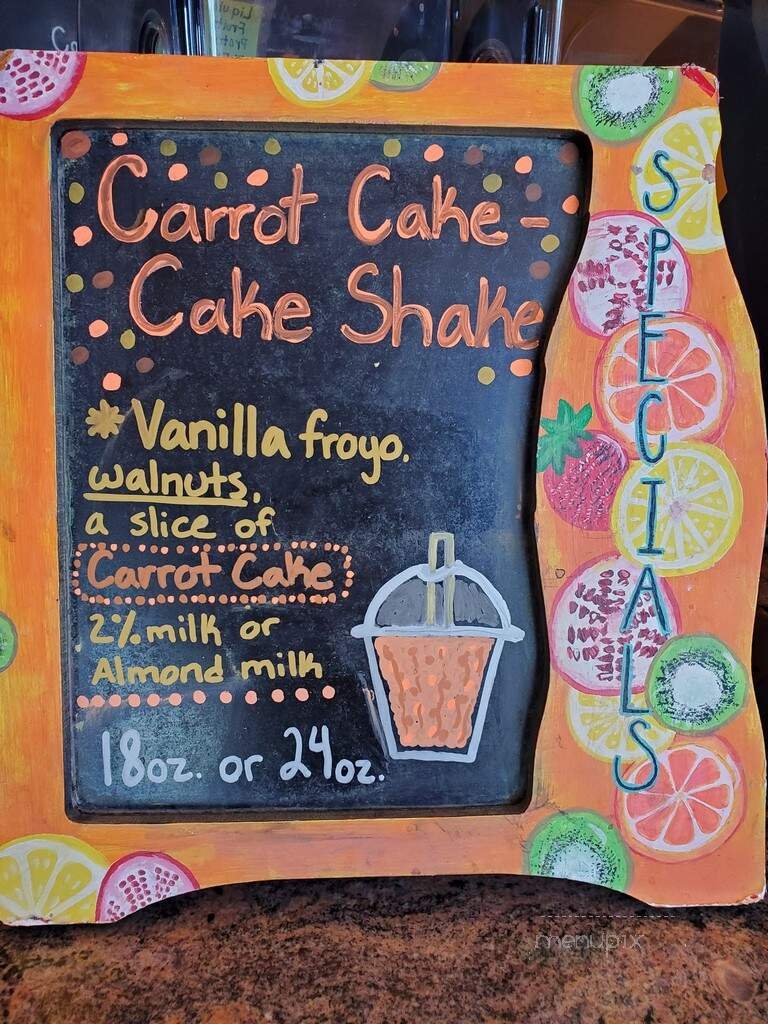 Carrot Cake -
Cake Shake
* Vanilla froyo,
walnuts,
a slice of
Carrot Cake
2% milk or
Almond milk
18oz. or 24oz.
SPECIALS
menupix